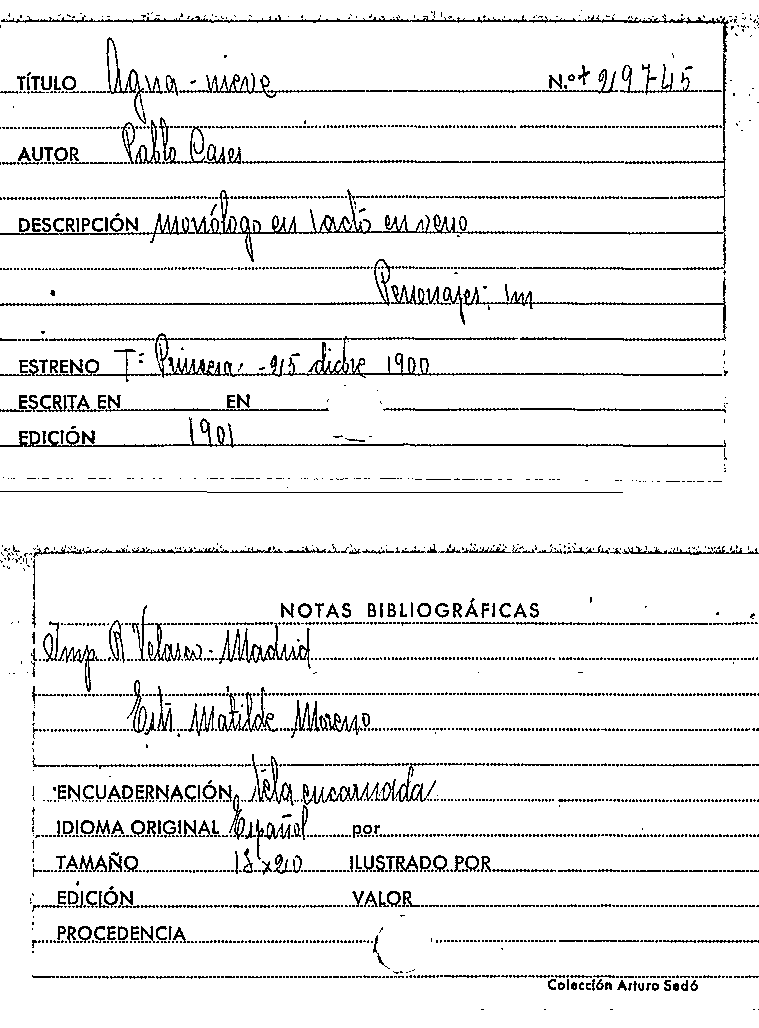 TÍTULO Agua-nieve N.º + 219745
AUTOR Pablo Cases
DESCRIPCIÓN Monólogo en 1 acto en verso
Personajes: 1m
ESTRENO Tº Princesa: -25 dicbre 1900
ESCRITA EN EN
EDICIÓN 1901
NOTAS BIBLIOGRÁFICAS
Imp R Velasco - Madrid
Estr. Matilde Moreno
ENCUADERNACIÓN tela encarnada
IDIOMA ORIGINAL Español por
TAMAÑO 13x20 ILUSTRADO POR
EDICIÓN VALOR
PROCEDENCIA
Colección Arturo Sedó